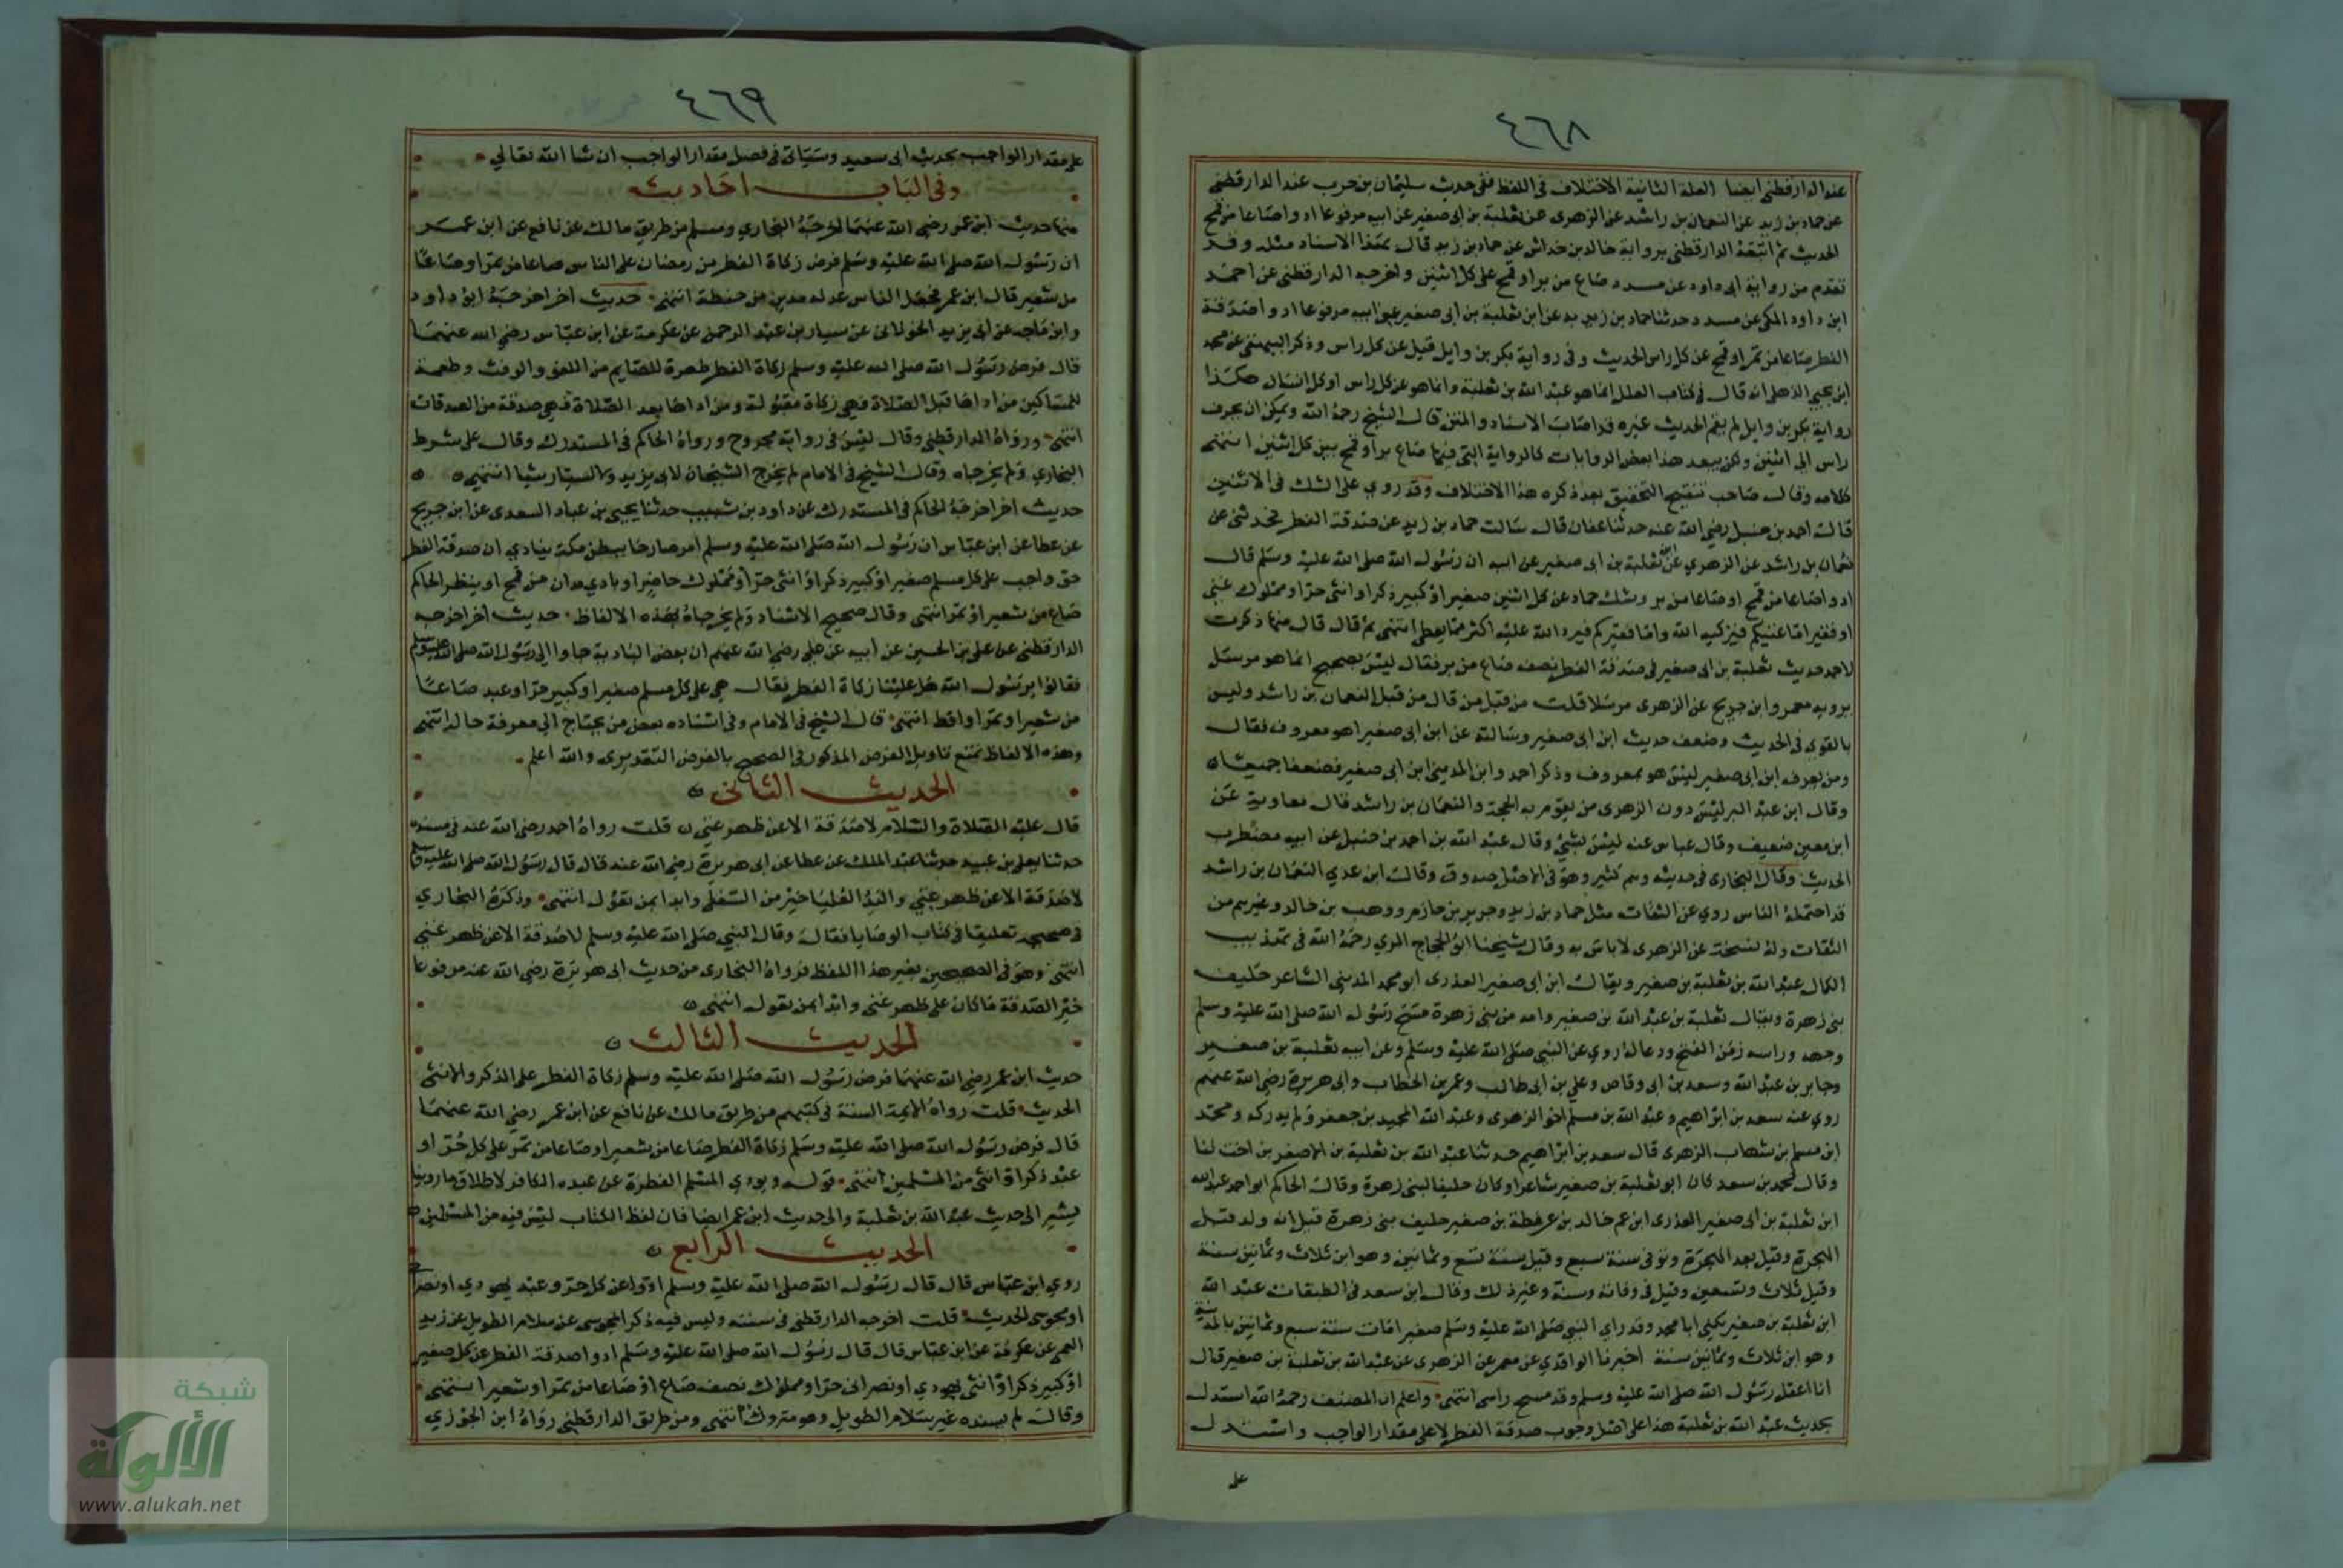 ٤٦٨
عند الدارقطني ايضا العلة الثانية الاختلاف في اللفظ ففي حديث سليمان بن حرب عند الدارقطني
عن حماد بن زيد عن النعمان بن راشد عن الزهري عن ثعلبة بن ابي صغير عن ابيه مرفوعا ادوا صاعا من قمح
الحديث ثم اتبعه الدارقطني برواية خالد بن خداش عن حماد بن زيد قال بهذا الاسناد مثله وقد
تقدم من رواية ابي داود عن مسدد صاع من بر او قمح على كل اثنين واخرجه الدارقطني عن احمد
ابن داود المكي عن مسدد حدثنا حماد بن زيد به عن ابن ثعلبة بن ابي صغير عن ابيه مرفوعا ادوا صدقة
الفطر صاعا من تمر او قمح عن كل راس الحديث وفي رواية بكر بن وايل قيل عن كل راس وذكر البيهقي عن محمد
ابن يحيي الذهلي انه قال في كتاب العلل انما هو عبد الله بن ثعلبة وانما هو عن كل راس او كل انسان هكذا
رواية بكر بن وايل لم يقم الحديث غيره قد اصاب الاسناد والمتن قال الشيخ رحمه الله ويمكن ان يحرف
راس الى اثنين ولكن يبعد هذا بعض الروايات كالرواية التي فيها صاع بر او قمح بين كل اثنين انتهى
كلامه وقال صاحب تنقيح التحقيق بعد ذكره هذا الاختلاف وقد روي على الشك في الاثنين
قال احمد بن حنبل رضي الله عنه حدثنا عفان قال سالت حماد بن زيد عن صدقة الفطر فحدثني عن
نعمان بن راشد عن الزهري عن ثعلبة بن ابي صغير عن ابيه ان رسول الله صلى الله عليه وسلم قال
ادوا صاعا من قمح او صاعا من بر وشك حماد عن كل اثنين صغير او كبير ذكر او انثى حر او مملوك غني
او فقير اما غنيكم فيزكيه الله واما فقيركم فيرد الله عليه اكثر مما يعطي انتهى ثم قال قال مهنا ذكرت
لاحمد حديث ثعلبة بن ابي صغير في صدقة الفطر نصف صاع من بر فقال ليس بصحيح انما هو مرسل
يرويه معمر وابن جريج عن الزهري مرسلا قلت من قبل من قال من قبل النعمان بن راشد وليس
بالقوي في الحديث وضعف حديث ابن ابي صغير وسالته عن ابن ابي صغير اهو معروف فقال
ومن يعرف ابن ابي صغير ليس هو بمعروف وذكر احمد وابن المديني ابن ابي صغير فضعفاه جميعا ه
وقال ابن عبد البر ليس دون الزهري من يقوم به الحجة والنعمان بن راشد قال معاوية عن
ابن معين ضعيف وقال عباس عنه ليس بشيء وقال عبد الله بن احمد بن حنبل عن ابيه مضطرب
الحديث وقال البخاري في حديثه وهم كثير وهو في الاصل صدوق وقال ابن عدي النعمان بن راشد
قد احتمله الناس روي عن الثقات مثل حماد بن زيد وجرير بن حازم ووهب بن خالد وغيرهم من
الثقات وله نسخة عن الزهري لا باس به وقال شيخنا ابو الحجاج المزي رحمه الله في تهذيب
الكمال عبد الله بن ثعلبة بن صغير ويقال ابن ابي صغير العذري ابو محمد المدني الشاعر حليف
بني زهرة ويقال ثعلبة بن عبد الله بن صغير وامه من بني زهرة مسح رسول الله صلى الله عليه وسلم
وجهه وراسه زمن الفتح ودعا له روي عن النبي صلى الله عليه وسلم وعن ابيه ثعلبة بن صغير
وجابر بن عبد الله وسعد بن ابي وقاص وعلي بن ابي طالب وعمر بن الخطاب وابي هريرة رضي الله عنهم
روي عنه سعد بن ابراهيم وعبد الله بن مسلم اخو الزهري وعبد الله المجيد بن جعفر ولم يدركه ومحمد
ابن مسلم بن شهاب الزهري قال سعد بن ابراهيم حدثنا عبد الله بن ثعلبة بن الاصغر بن اخت لنا
وقال محمد بن سعد كان ابو ثعلبة بن صغير شاعرا وكان حليفا لبني زهرة وقال الحاكم ابو احمد عبد الله
ابن ثعلبة بن ابي صغير العذري ابن عم خالد بن عرفطة بن صغير حليف بني زهرة قيل انه ولد قبل
الهجرة وقيل بعد الهجرة وتوفي سنة سبع وقيل سنة تسع وثمانين وهو ابن ثلاث وثمانين سنة
وقيل ثلاث وتسعين وقيل في وفاته وسنه وغير ذلك وقال ابن سعد في الطبقات عبد الله
ابن ثعلبة بن صغير يكنى ابا محمد وقد راي النبي صلى الله عليه وسلم صغيرا مات سنة سبع وثمانين بالمدينة
وهو ابن ثلاث وثمانين سنة اخبرنا الواقدي عن معمر عن الزهري عن عبد الله بن ثعلبة بن صغير قال
انا اعقل رسول الله صلى الله عليه وسلم وقد مسح راسي انتهى واعلم ان المصنف رحمه الله استدل
بحديث عبد الله بن ثعلبة هذا على اصل وجوب صدقة الفطر لا على مقدار الواجب واستدل
على
٤٦٩
على مقدار الواجب بحديث ابي سعيد وسياتي في فصل مقدار الواجب ان شا الله تعالي
وفي الباب احاديث
منها حديث ابن عمر رضي الله عنهما اخرجه البخاري ومسلم من طريق مالك عن نافع عن ابن عمر
ان رسول الله صلى الله عليه وسلم فرض زكاة الفطر من رمضان على الناس صاعا من تمر او صاعا
من شعير قال ابن عمر فجعل الناس عدله مدين من حنطة انتهى حديث اخر اخرجه ابو داود
وابن ماجه عن ابي يزيد الخولاني عن سيار بن عبد الرحمن عن عكرمة عن ابن عباس رضي الله عنهما
قال فرض رسول الله صلى الله عليه وسلم زكاة الفطر طهرة للصايم من اللغو والرفث وطعمة
للمساكين من اداها قبل الصلاة فهي زكاة مقبولة ومن اداها بعد الصلاة فهي صدقة من الصدقات
انتهى ورواه الدارقطني وقال ليس في رواته مجروح ورواه الحاكم في المستدرك وقال على شرط
البخاري ولم يخرجاه وقال الشيخ في الامام لم يخرج الشيخان لابي يزيد ولا لسيار شيا انتهى ه
حديث اخر اخرجه الحاكم في المستدرك عن داود بن شبيب حدثنا يحيي بن عباد السعدي عن ابن جريج
عن عطا عن ابن عباس ان رسول الله صلى الله عليه وسلم امر صارخا ببطن مكة ينادي ان صدقة الفطر
حق واجب على كل مسلم صغير او كبير ذكر او انثى حر او مملوك حاضر او بادي مدان من قمح او ينظر الحاكم
صاع من شعير او تمر انتهى وقال صحيح الاسناد ولم يخرجاه بهذه الالفاظ حديث اخر اخرجه
الدارقطني عن علي بن الحسين عن ابيه عن علي رضي الله عنهم ان بعض البادية جاوا الى رسول الله صلى الله عليه وسلم
فقالوا يرسول الله هل علينا زكاة الفطر فقال هي على كل مسلم صغير او كبير حر او عبد صاعا
من شعير او تمر او اقط انتهى قال الشيخ في الامام وفي اسناده بعض من يحتاج الى معرفة حاله انتهى
وهذه الالفاظ تمنع تاويل الفرض المذكور في الصحيح بالفرض التقديري والله اعلم
الحديث الثاني ه
قال عليه الصلاة والسلام لا صدقة الا عن ظهر غني ه قلت رواه احمد رضي الله عنه في مسنده
حدثنا يعلى بن عبيد حدثنا عبد الملك عن عطا عن ابي هريرة رضي الله عنه قال قال رسول الله صلى الله عليه وسلم
لا صدقة الا عن ظهر غني واليد العليا خير من السفلى وابدا بمن تعول انتهى وذكره البخاري
في صحيحه تعليقا في كتاب الوصايا فقال وقال النبي صلى الله عليه وسلم لا صدقة الا عن ظهر غني
انتهى وهو في الصحيحين بغير هذا اللفظ فرواه البخاري من حديث ابي هريرة رضي الله عنه مرفوعا
خير الصدقة ما كان على ظهر غني وابدا بمن تعول انتهى ه
الحديث الثالث ه
حديث ابن عمر رضي الله عنهما فرض رسول الله صلى الله عليه وسلم زكاة الفطر على الذكر والانثى
الحديث قلت رواه الايمة الستة في كتبهم من طريق مالك عن نافع عن ابن عمر رضي الله عنهما
قال فرض رسول الله صلى الله عليه وسلم زكاة الفطر صاعا من شعير او صاعا من تمر على كل حر او
عبد ذكر او انثى من المسلمين انتهى قوله ويودي المسلم الفطرة عن عبده الكافر لاطلاق ما روينا
يشير الى حديث عبد الله بن ثعلبة والى حديث ابن عمر ايضا فان لفظ الكتاب ليس فيه من المسلمين ه
الحديث الرابع ه
روي ابن عباس قال قال رسول الله صلى الله عليه وسلم ادوا عن كل حر وعبد يهودي او نصراني
او مجوسي الحديث قلت اخرجه الدارقطني في سننه وليس فيه ذكر المجوسي عن سلام الطويل عن زيد
العمي عن عكرمة عن ابن عباس قال قال رسول الله صلى الله عليه وسلم ادوا صدقة الفطر عن كل صغير
او كبير ذكر او انثى يهودي او نصراني حر او مملوك نصف صاع او صاعا من تمر او شعير انتهى
وقال لم يسنده غير سلام الطويل وهو متروك انتهى ومن طريق الدارقطني رواه ابن الجوزي
شبكة
الألوكة
www.alukah.net